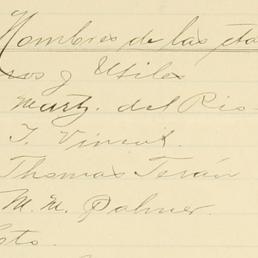 Nombres de las eta
rros y Utiles
Martz. del Rio
T. Vincent.
Thomas Terán
M. M. Palmer.
cto.